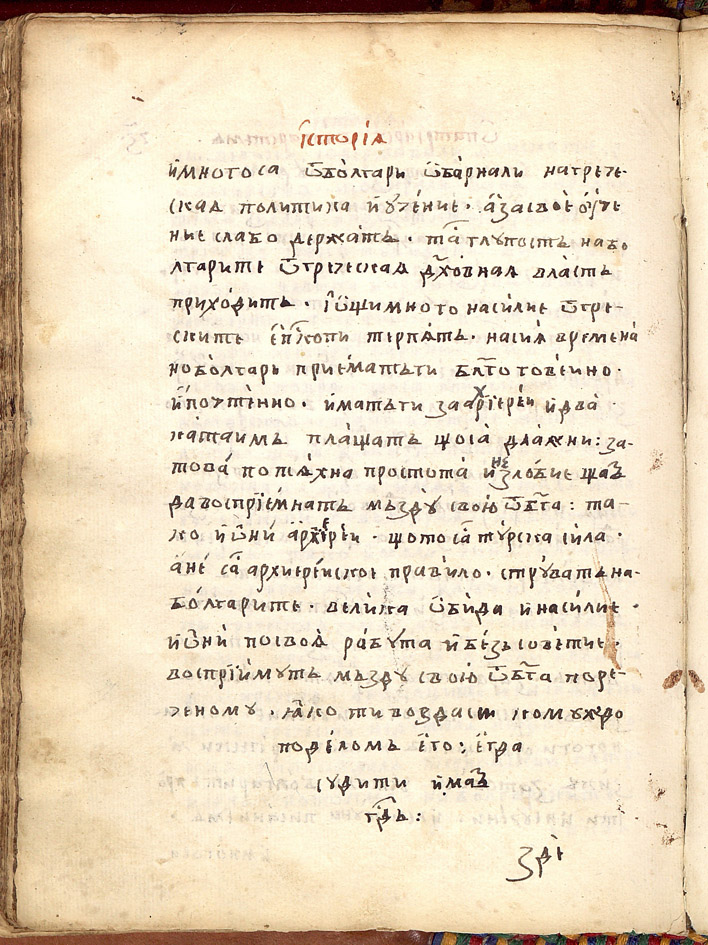 їсторїѧ
и҆ много са ѿ болгари ѿварнали на грече-
скаѧ политика и҆ ꙋчение · а҆ за свое ᲂу҆че
ние слабо держатъ · таѧ глупость на бо
лгарите ѿ греческаѧ дх҃овнаѧ власть
приходитъ · ї҆ ѡ҆щи много насилие ѿ гре-
ските е҆п҃копи терпѧтъ · на сиѧ времена
но болгари приематъ ги бл҃гоговеино ·
и҆ почтенно · и҆матъ ги за архїереи и҆ два
катаимъ плащатъ що їа длажни : за-
това по тѧхна простота и҆ незлобие щат
да воспрїемнатъ мъздꙋ свою ѿ бг҃а : та-
ко и҆ ѡ҆ни архїереи · що то са тꙋрска сила ·
а҆ не са архиереиское правило · стрꙋватъ на-
болгарите · велика ѡ҆бида и҆ насилие ·
и҆ ѡ҆ни по своѧ рабꙋта и҆ безсоветие ·
воспрїимꙋтъ мъздꙋ свою ѿ бг҃а по ре-
ченому · ꙗ҆ко ти воздаси комуждо
по деломъ е҆го : е҆гда
сꙋдити и҆мат
гд҃ь :
зри